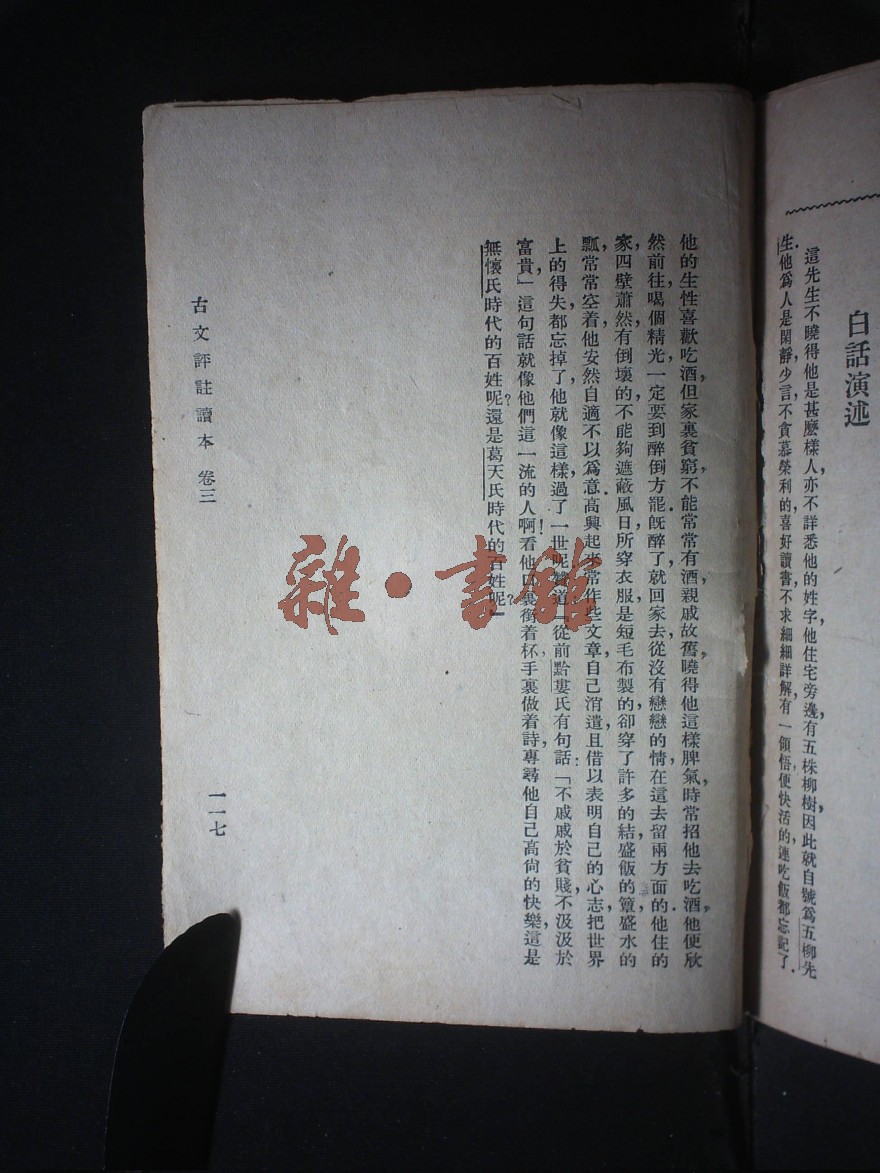 白話演述
這先生不曉得他是甚麽樣人，亦不詳悉他的姓字，他住宅旁邊，有五株柳樹，因此就自號爲五柳先
生．他爲人是閑靜少言，不貪慕榮利的，喜好讀書，不求細細詳解，有一領悟，便快活的連吃飯都忘記了．
他的生性喜歡吃酒，但家裏貧窮，不能常常有酒，親戚故舊，曉得他這樣脾氣，時常招他去吃酒，他便欣
然前往，喝個精光，一定要到醉倒方罷．旣醉了，就回家去，從沒有戀戀的情在這去留兩方面的．他住的
家，四壁蕭然，有倒壞的，不能夠遮蔽風日，所穿衣服，是短毛布製的，卻穿了許多的結，盛飯的簟，盛水的
瓢，常常空着，他安然自適，不以爲意．高興起來，常作些文章，自己消遣，且借以表明自己的心志，把世界
上的得失都忘掉了，他就像這樣過了一世呢．贊道：「從前黔婁氏有句話：「不戚戚於貧賤，不汲汲於
富貴，」這句話就像他們這一流的人啊！看他口裏銜着杯，手裏做着詩，專尋他自己高尙的快樂，這是
無懷氏時代的百姓呢？還是葛天氏時代的百姓呢？」
古文評註讀本 卷三
一一七
雜·書館